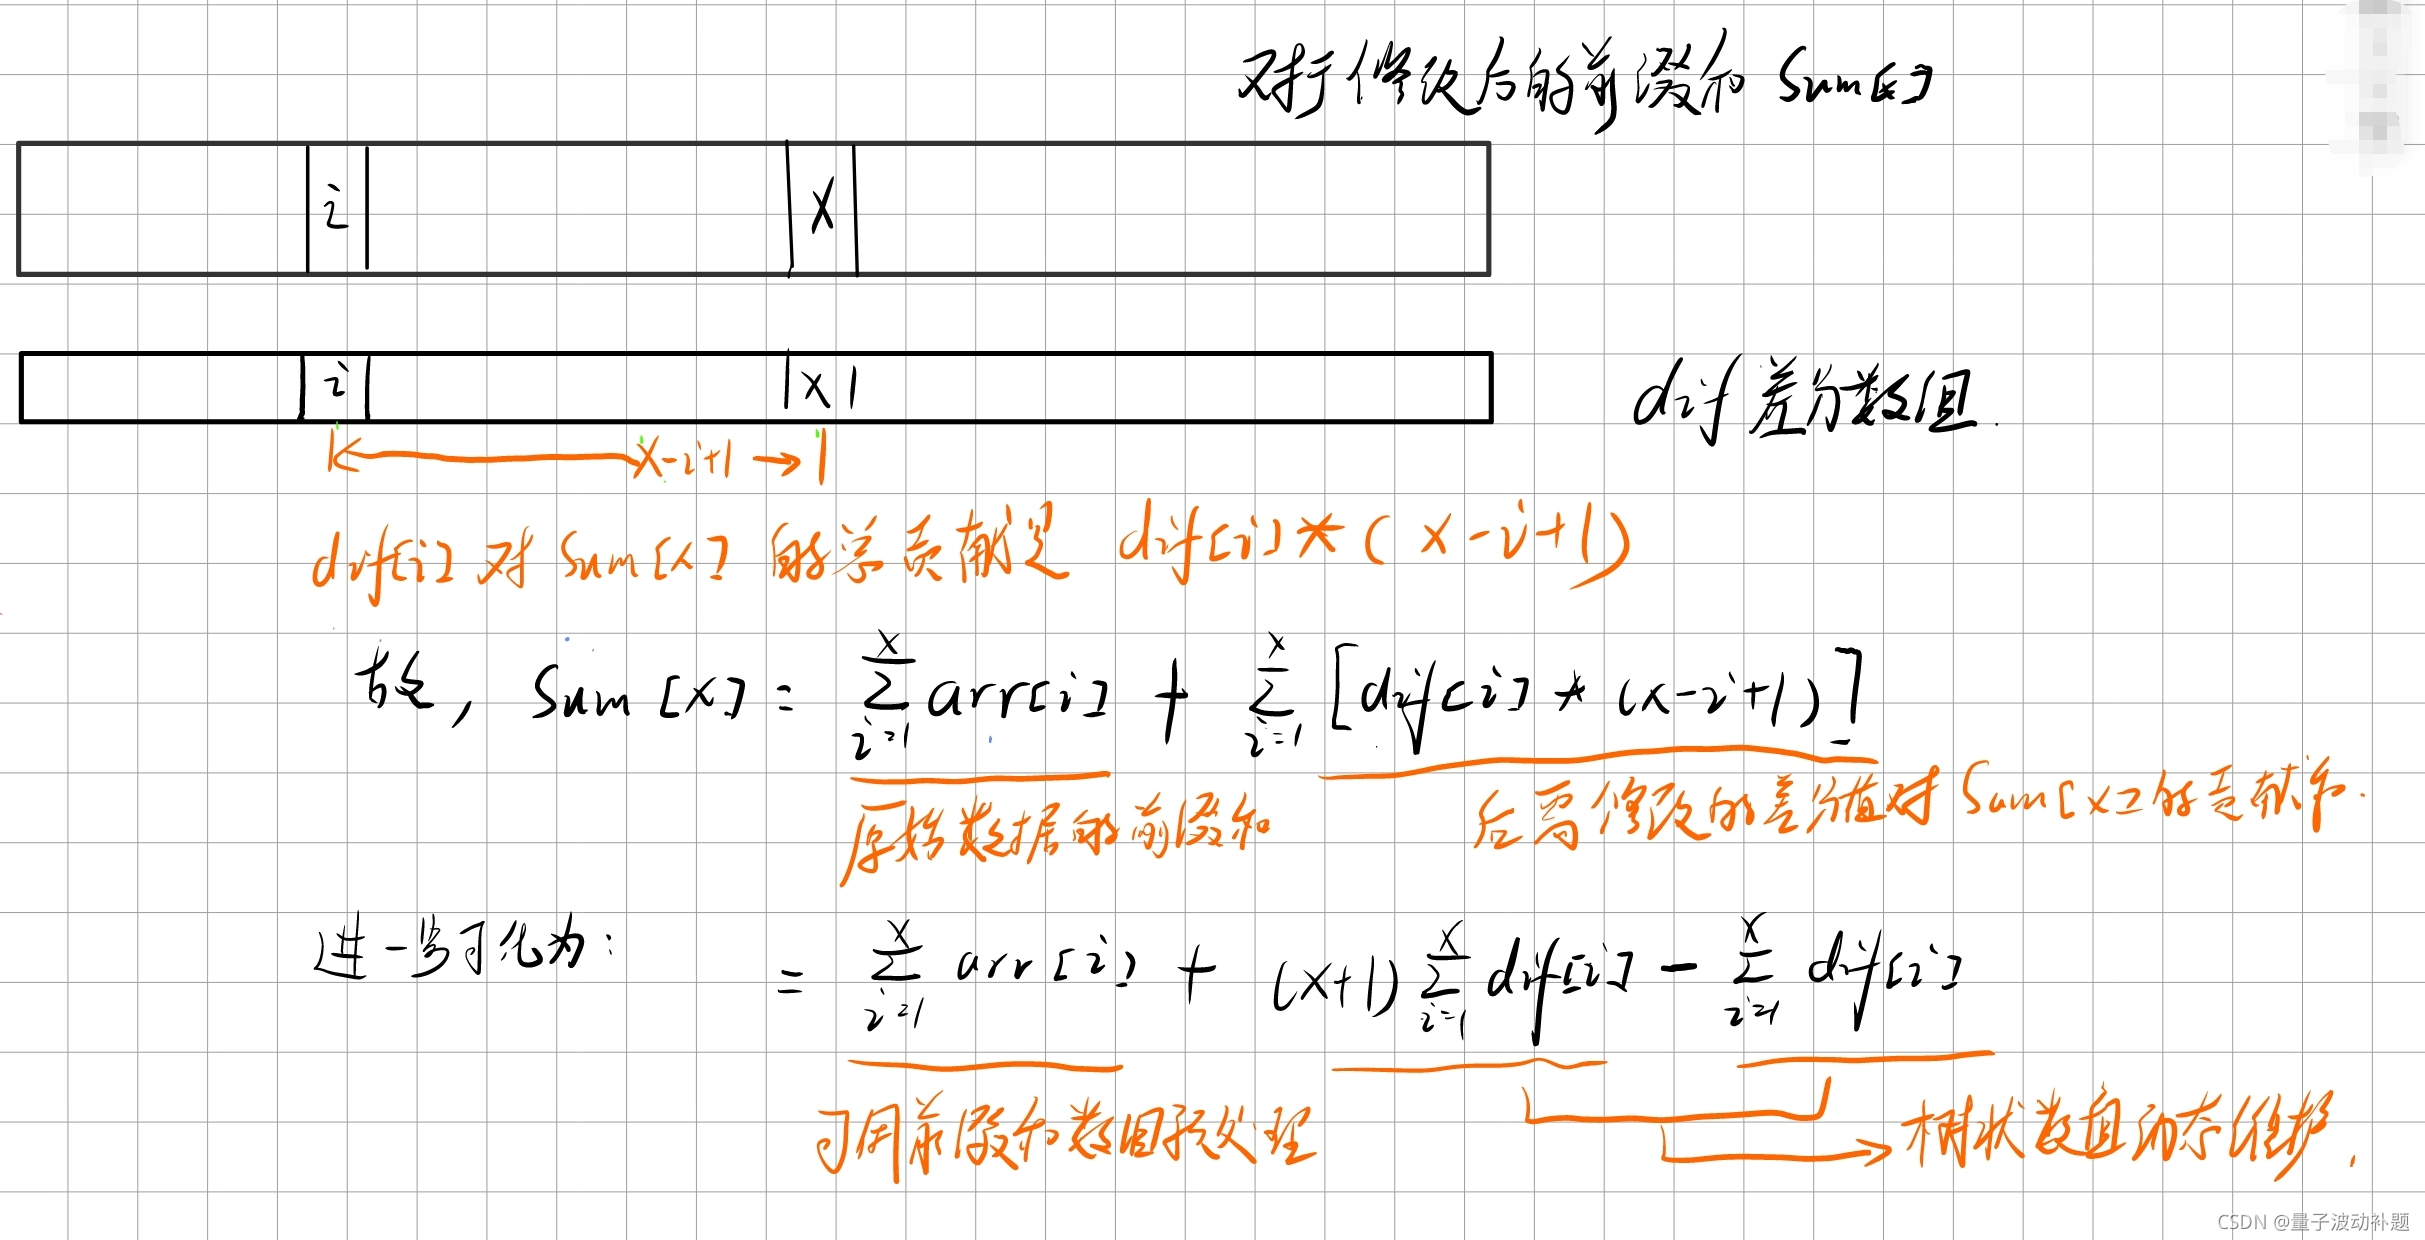 对于修改后的前缀和 Sum[x]
i x
i x
dif 差分数组.
x-i+1
dif[i] 对 Sum[x] 的总贡献是 dif[i]*(x-i+1)
故, Sum[x] = \sum_{i=1}^{x} arr[i] + \sum_{i=1}^{x} [dif[i] * (x-i+1)]
原始数据的前缀和 后需修改的差分值对 Sum[x]的贡献和.
进一步可化为: = \sum_{i=1}^{x} arr[i] + (x+1) \sum_{i=1}^{x} dif[i] - \sum_{i=1}^{x} dif[i]
可用前缀和数组预处理 树状数组动态维护.
CSDN @量子波动补题